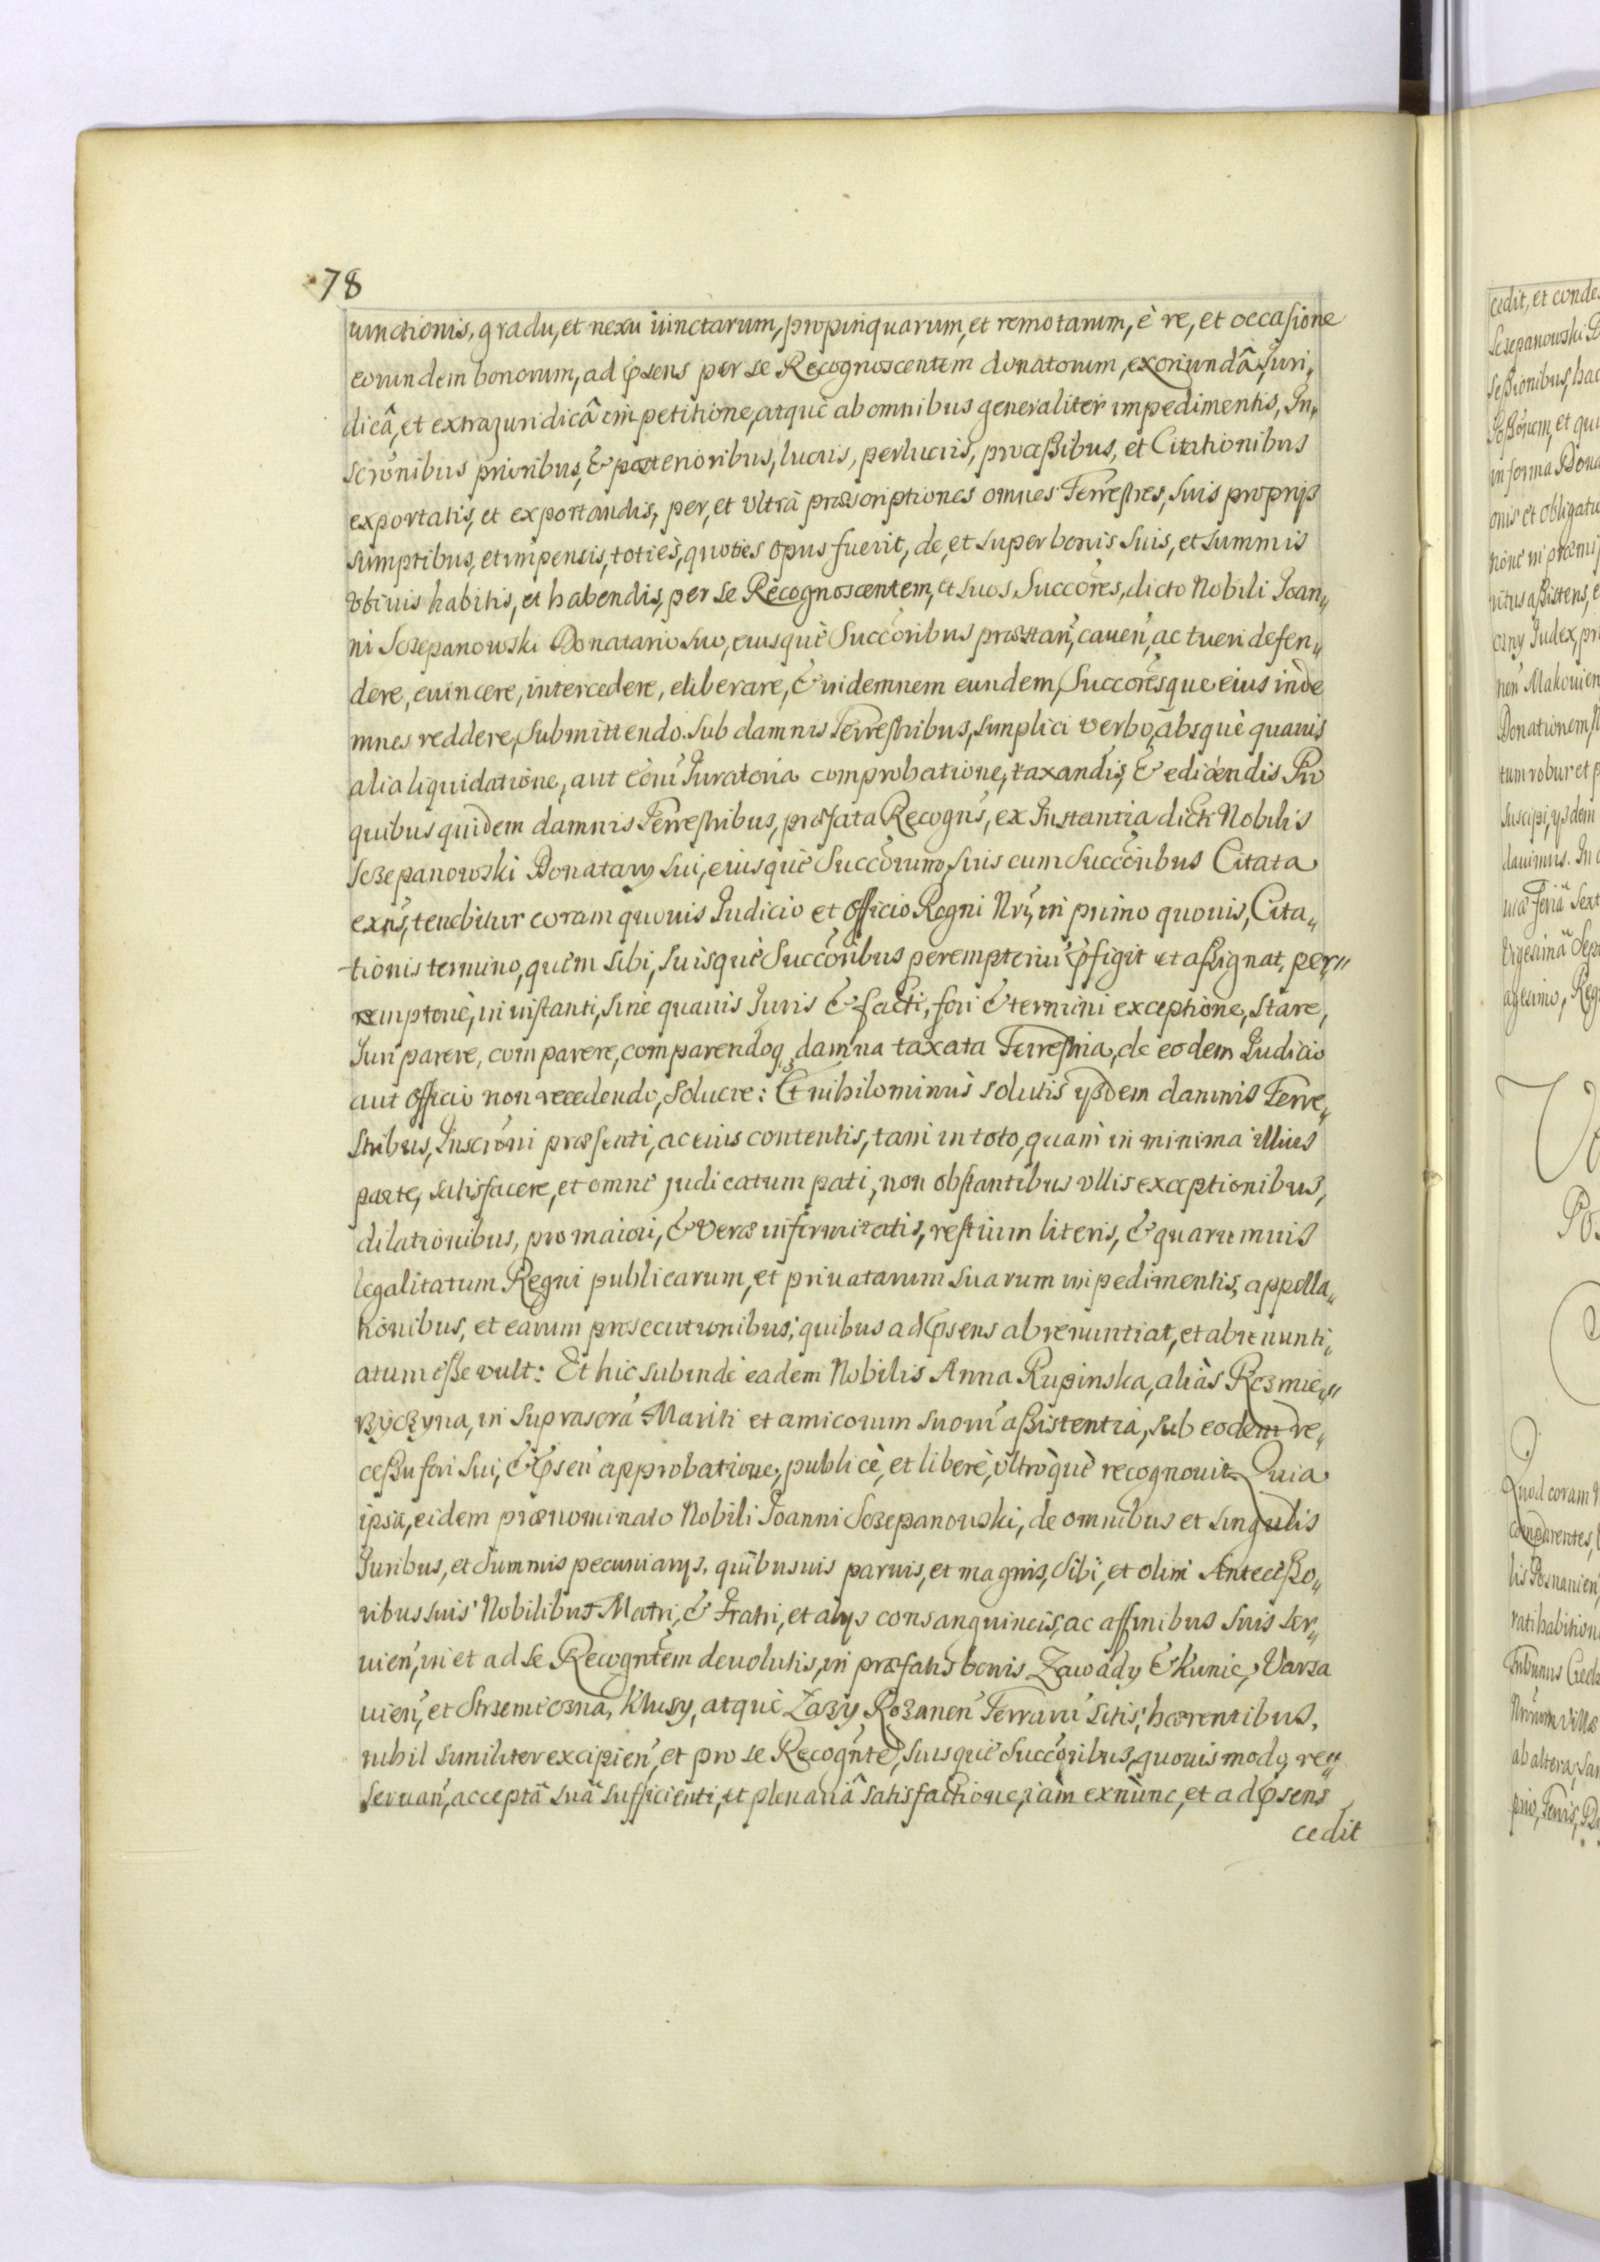 78
iunctionis, gradu, et nexu iunctarum, propinquarum, et remotarum, è re, et occasione
eorundem bonorum, ad psens per se Recognoscentem donatorum, exoriundâ Juri,,
dicâ, et extrajuridicâ impetitione, atquè ab omnibus generaliter impedimentis, In,,
scrōnibus prioribus, & posterioribus, lucris, perlucris, processibus, et Citationibus
exportatis, et exportandis, per, et vltrà præscriptiones omnes Terrestres, suis proprys
sumptibus, et impensis, totiès, quoties opus fuerit, de, et super bonis suis, et summis
vbiuis habitis, et habendis, per se Recognoscentem, et suos Succōres, dicto Nobili Joan,,
ni Sczepanowski Donatario suo, eiusquè Succōribus præstan̄, cauen̄, ac tueri defen,,
dere, euincere, intercedere, eliberare, & indemnem eundem, Succōresque eius inde
mnes reddere, Submittendo sub damnis Terrestribus, simplici verbo, absquè quauis
alia liquidatione, aut eōrū Juratoria comprobatione, taxandis, & edicendis Pro
quibus quidem damnis Terrestribus, præfata Recogn̄s, ex Instantia dicti Nobilis
Sczepanowski Donatary sui, eiusquè Succōrum, suis cum Succōribus Citata
exn̄s, tenebitur coram quouis Judicio et Officio Regni Nr̄i, in primo quouis, Cita,,
tionis termino, quem sibi, suisquè Succōribus peremptoriū pfigit et assignat, per,,
remptoriè, in instanti, sine quauis Juris & facti, fori & termini exceptione, stare,
Juri parere, comparere, comparendoq damna taxata Terrestria, de eodem Judicio
aut Officio non recedendo, soluere: Et nihilominùs solutis ysdem damnis Terre,,
stribus, Inscrōni præsenti, ac eius contentis, tam in toto, quam in minima illius
parte, satisfacere, et omne judicatum pati, non obstantibus vllis exceptionibus,
dilationibus, pro maiori, & vera infirmitatis, restium literis, & quarumuis
legalitatum Regni publicarum, et priuatarum suarum impedimentis, appella,,
tionibus, et earum prosecutionibus; quibus ad psens abrenuntiat, et abrenunti,,
atum esse vult: Et hic subindè eadem Nobilis Anna Rupinska, aliàs Rozmie,,
rzyczyna, in suprascrā Mariti et amicorum suorū assistentia, sub eodem re,,
cessu fori sui, & psen̄ approbatione, publicè, et liberè, vltròquè recognouit Quia
ipsa, eidem prænominato Nobili Joanni Sczepanowski, de omnibus et singulis
Juribus, et Summis pecuniarys, quibusuis paruis, et magnis, sibi, et olim Antecesso,,
ribus suis Nobilibus Matri, & Fratri, et alys consanguineis, ac affinibus suis ser,,
uien̄, in et ad se Recogntem deuolutis, in præfatis bonis Zawady & Kunic, Varsa
uien̄, et Strzemieczna, Klusy, atquè Zazy Rozanen̄ Terrarū sitis, hærentibus,
nihil similiter excipien̄, et pro se Recogn̄te, suisquè Succōribus, quouis modo, re,,
seruan̄, acceptâ suâ sufficienti, et plenariâ satisfactione, iàm exnùnc, et ad psens
cedit